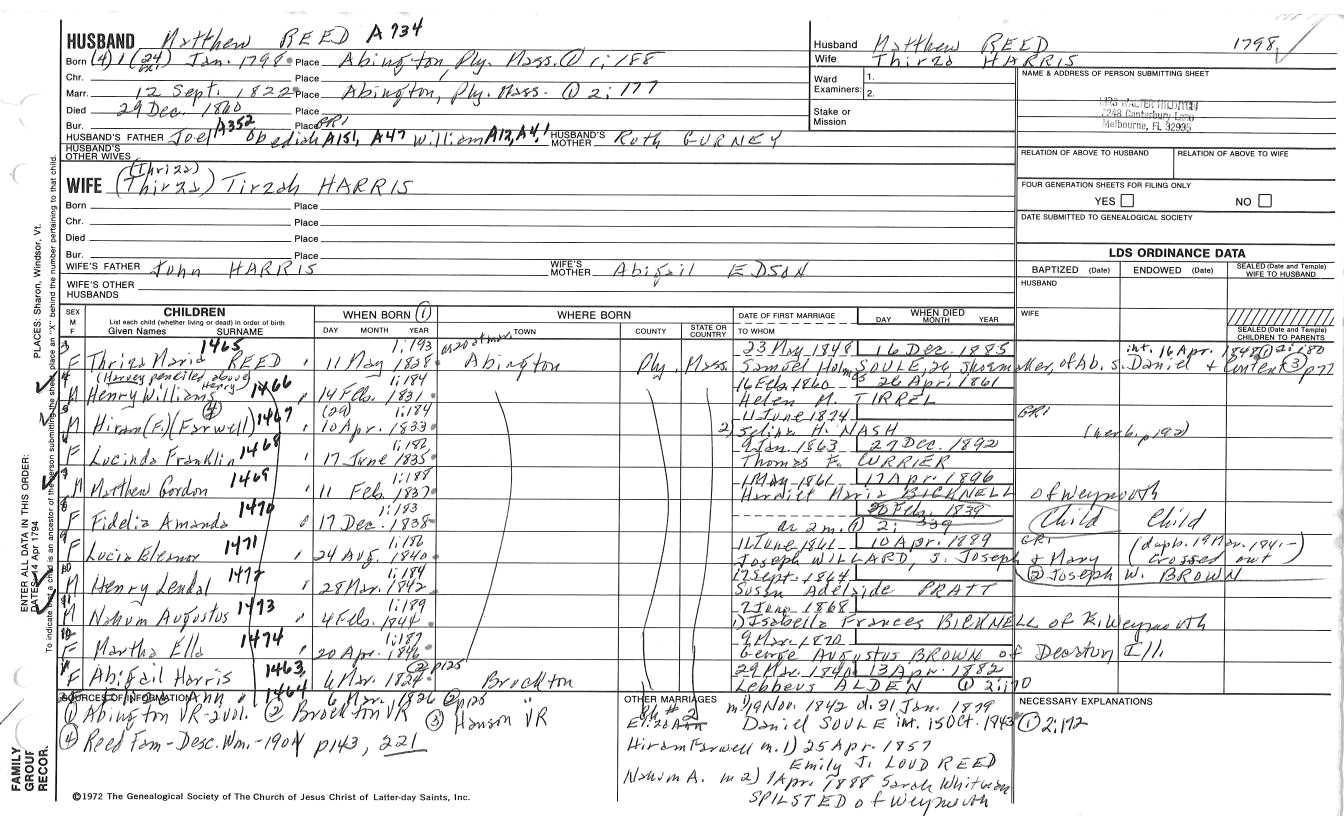 HUSBAND Matthew REED A734
Born (4) 1 (24) Jan. 1798 Place Abington, Ply. Mass. ① 1;188
Chr. Place
Marr. 12 Sept. 1822 Place Abington, Ply. Mass. ① 2;177
Died 29 Dec. 1860 Place
Bur. Place GRI
HUSBAND'S FATHER Joel A352 Obediah A151, A47 William A12, A4, 1 HUSBAND'S MOTHER Ruth GURNEY
HUSBAND'S OTHER WIVES
(Thriza)
WIFE (Thirza) Tirzah HARRIS
Born Place
Chr. Place
Died Place
Bur. Place
WIFE'S FATHER John HARRIS WIFE'S MOTHER Abigail EDSON
WIFE'S OTHER HUSBANDS
Husband Matthew REED 1798
Wife Thirza HARRIS
Ward Examiners: 1. 2.
Stake or Mission
NAME & ADDRESS OF PERSON SUBMITTING SHEET
MRS WALTER
7248 Canterbury Lane
Melbourne, FL 32935
RELATION OF ABOVE TO HUSBAND RELATION OF ABOVE TO WIFE
FOUR GENERATION SHEETS FOR FILING ONLY
YES NO
DATE SUBMITTED TO GENEALOGICAL SOCIETY
LDS ORDINANCE DATA
BAPTIZED (Date) ENDOWED (Date) SEALED (Date and Temple) WIFE TO HUSBAND
HUSBAND
WIFE
SEALED (Date and Temple) CHILDREN TO PARENTS
SEX M F
CHILDREN
List each child (whether living or dead) in order of birth
Given Names SURNAME
WHEN BORN ①
DAY MONTH YEAR
WHERE BORN
TOWN COUNTY STATE OR COUNTRY
DATE OF FIRST MARRIAGE
TO WHOM
WHEN DIED
DAY MONTH YEAR
3 1465 1;193 23 May 1848 16 Dec. 1885 int. 16 Apr. 1848 ① 2;180
F Thriza Maria REED 11 May 1828 Abington Ply. Mass. Samuel Holmes SOULE, 26, shoemaker, of Ab. s. Daniel + Content ③ p77
4 (Harvey penciled above Henry) 1466 1;184 16 Feb. 1860 26 Apr. 1861
M Henry Williams 14 Feb. 1831 Helen M. TIRREL
5 ④ 1467 (29) 1;184 11 June 1874 GRI
M Hiram (F.) (Farwell) 10 Apr. 1833 2) Selina H. NASH
1468 1;186 9 Jan. 1863 27 Dec. 1892
F Lucinda Franklin 17 June 1835 Thomas F. CURRIER
1469 1;188 1 May 1861 17 Apr. 1896
M Matthew Gordon 11 Feb. 1837 Harriet Maria BICKNELL of Weymouth
8 1470 1;183 20 Feb. 1839
F Fidelia Amanda 17 Dec. 1838 ae 2 m. ① 2; 339 Child Child
9 1471 1;186 11 June 1861 10 Apr. 1889 GRI (dupl. 19 Mar. 1841- crossed out
F Lucia Eleanor 24 Aug. 1840 Joseph WILLARD, s. Joseph + Mary
10 1472 1;184 17 Sept. 1864 ② Joseph W. BROWN
M Henry Lendal 28 Mar. 1842 Susan Adelaide PRATT
11 1473 1;189 7 June 1868
M Nahum Augustus 4 Feb. 1844 1) Isabella Frances BICKNELL of N. Weymouth
12 1474 1;187 9 Mar. 1870
F Martha Ella 20 Apr. 1846 George Augustus BROWN of Ill.
1 1463 ② p125 29 Mar. 1840 13 Apr. 1882
F Abigail Harris 6 Mar. 1824 Brockton Lebbeus ALDEN ① 2;170
F Ann 1464 6 Mar. 1826 ② p125
SOURCES OF INFORMATION
① Abington VR-2 vol. ② Brockton VR ③ Hanson VR
④ Reed Fam-Desc. Wm.-1904 p143, 221
OTHER MARRIAGES
Ch # 2 m. 1) 9 Nov. 1842 d. 31 Jan. 1879
Eliza Ann Daniel SOULE int. 15 Oct. 1943 ① 2;172
Hiram Farwell m. 1) 25 Apr. 1857
Emily J. LOUD REED
Nahum A. m 2) 1 Apr. 1888 Sarah Whitman
SPILSTED of Weymouth
NECESSARY EXPLANATIONS
©1972 The Genealogical Society of The Church of Jesus Christ of Latter-day Saints, Inc.
ENTER ALL DATA IN THIS ORDER:
DATES: 14 Apr 1794
PLACES: Sharon, Windsor, Vt.
To indicate that a child is an ancestor of the person submitting the sheet, place an "X" behind the number pertaining to that child.
FAMILY GROUP RECOR.